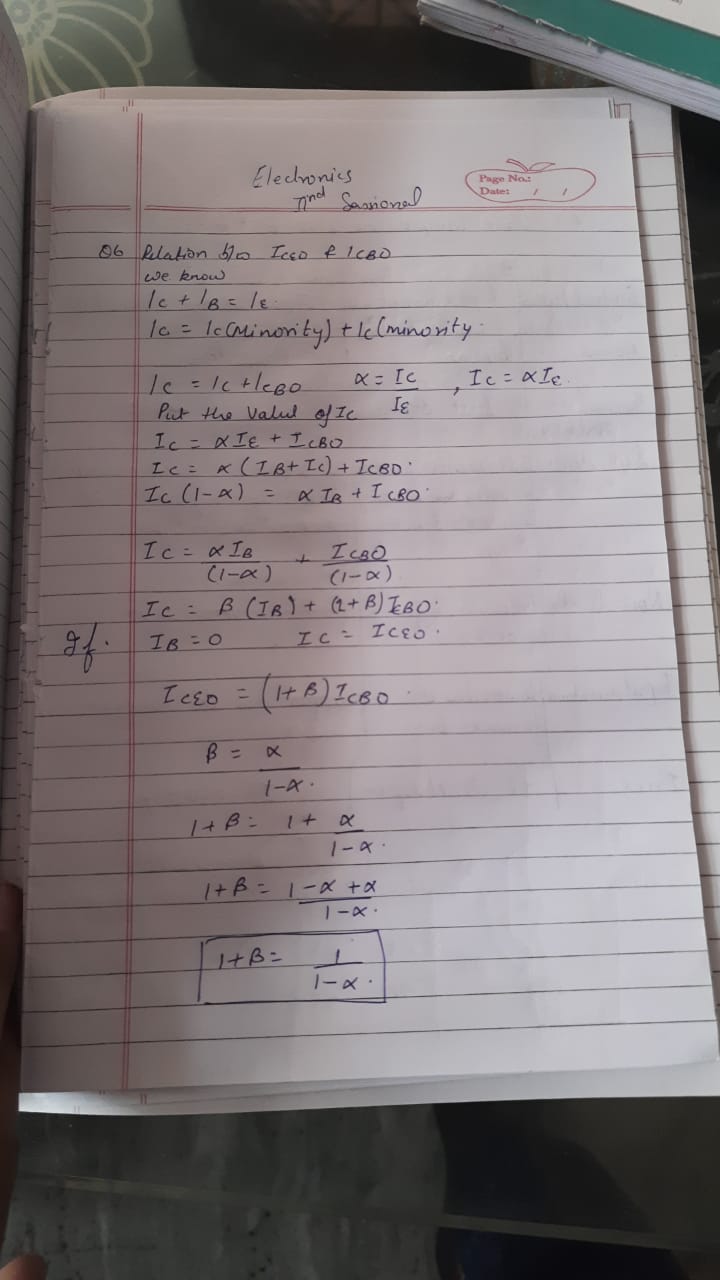 Electronics
IInd Sassional
Page No.:
Date: / /
Q6 Relation b/w ICEO & ICBO
we know
IC + IB = IE
IC = IC(Minority) + IC(minority
IC = IC + ICBO α = IC/IE , IC = αIE
Put the Value of IC
IC = αIE + ICBO
IC = α(IB + IC) + ICBO
IC(1-α) = αIB + ICBO
IC = αIB/(1-α) + ICBO/(1-α)
IC = β(IB) + (1+β)ICBO
If. IB = 0 IC = ICEO
ICEO = (1+β)ICBO
β = α/1-α.
1+β = 1 + α/1-α.
1+β = 1-α+α/1-α.
1+β = 1/1-α.